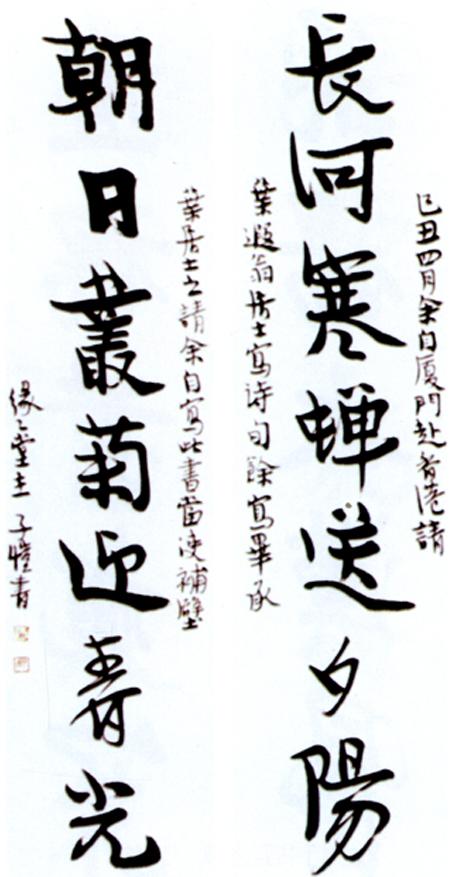 己丑四月余自厦門赴香港請
長河寒蝉送夕陽
葉遐翁居士寫詩句餘寫畢承
葉居士之請余自寫此書當湊補壁
朝日叢菊迎青光
缘〻堂主 子愷書